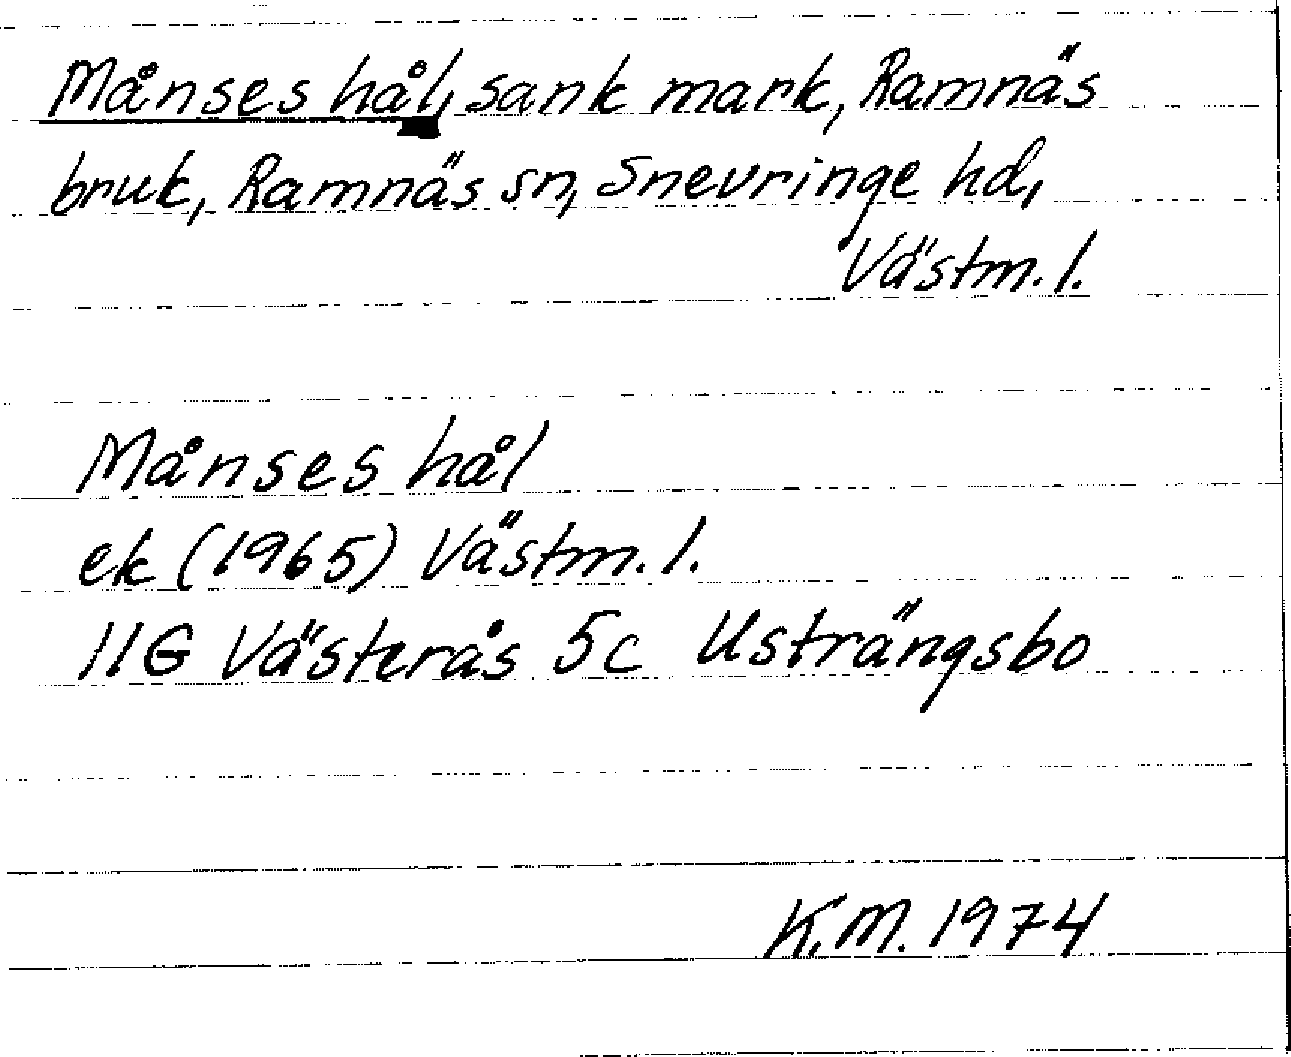 Månses hål, sank mark, Ramnäs
bruk, Ramnäs sn, Snevringe hd,
Västm. l.
Månses hål
ek (1965) Västm. l.
11G Västerås 5c Usträngsbo
K.M. 1974